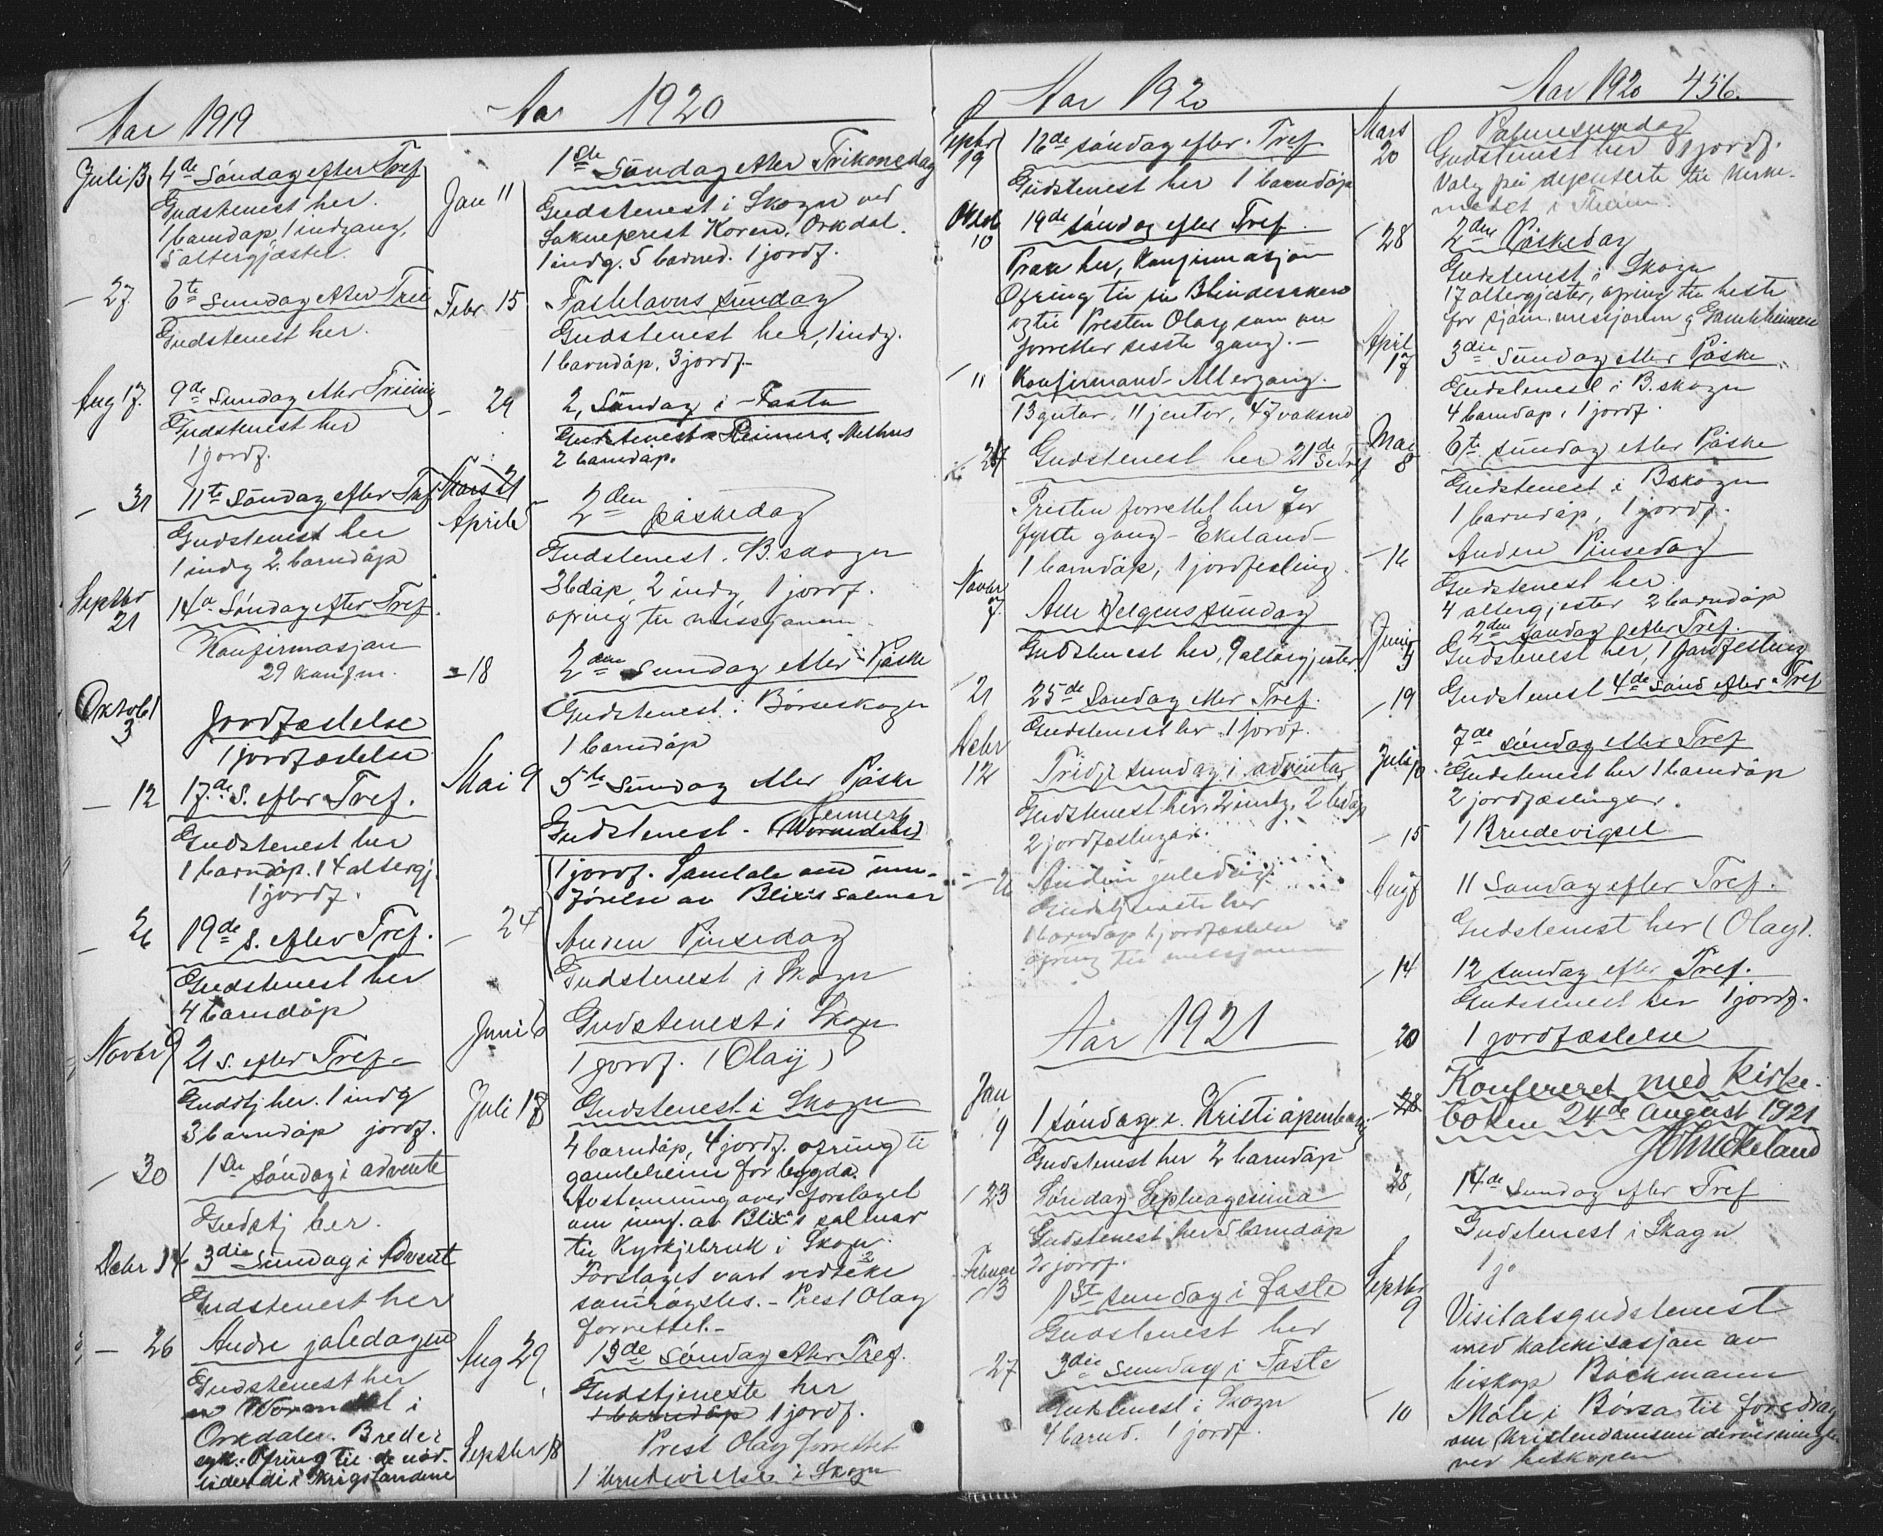 Aar 1919
Juli 13 4de Søndag efter Tref
Gudstenest her.
1 barndåp, 1 indgang,
5 altergjæster.
— 27 6te Sundag etter Trei
Gudstenest her.
Aug 17. 9de Sundag etter Treiing
Gudstenest her
1 jordf.
— 31 11te Søndag efter Tref
Gudstenest her
1 indg 2. barndåp
Septbr 21 14de Søndag efter Tref.
Konfirmasjon
29 konfm.
Oktob 3 Jordfæstelse
1 jordfæstelse
— 12 17de S. efter Tref.
Gudstenest her
1 barndåp. 14 altergj.
1 jordf.
— 26 19de S. efter Tref.
Gudstenest her
4 barndåp
Novbr 9 21 S. efter Tref.
Gudstj her. 1 indg
3 barndåp jordf.
— 30 1ste Søndag i advente
Gudstj her.
Decbr 14 3die Sundag i Advent
Gudstenest her
— 26 Andre joledagen
Gudstenest her
Wormdal i
Orkdalen. Breder
syk. Ofring til de nød-
lidendi i Krigslandene
Aar 1920
Jan 11 1ste Søndag etter Trikongedag
Gudstenest i Skogn ved
Sokneprest Koren, Orkdal.
1 indg. 5 barned. 1 jordf.
Febr 15 Fastelavns sundag
Gudstenest her, 1 indg.
1 barndåp, 3 jordf.
— 29 2, Søndag i Fasta
Gudstenest Reimers, Melhus
2 barndåp.
Mars 21
April 5 2den påskedag
Gudstenest. B.skogn
3 bdåp, 2 indg, 1 jordf.
ofring til missjonen
— 18 2den Sundag etter Påske
Gudstenest i Børseskogn
1 barndåp
Mai 9 5te Sundag etter Påske
Gudstenest. Reimers
(Wormdal)
1 jordf. Samtale om inn-
førelse av Blix's salmar
— 24 Anden Pinsedag
Gudstenest i Skogn
Juni 6 Gudstenest i Skogn
1 jordf. (Olay)
Juli 18 Gudstenest i Skogn
4 barndåp, 4 jordf. ofring ti
gamleheim for bygda.
Avstemning over forslaget
om innf. av Blix's salmar
til Kyrkjebruk i Skogn.
Forslaget vart vedteke
samrøystes. – Prest Olay
forrettet. –
Aug 29 13de Søndag etter Tref.
Gudstjeneste her
1 barndåp 1 jordf.
Prest Olay forrettet
Septbr 18 1 brudevielse i Skogn
Aar 1920
Septbr 19 16de søndag efter Tref
Gudstenest her 1 barndåp
Oktob 10 19de søndag efter Tref.
Prøve her, Konfirmasjon
Ofring til
og til Presten Olay som nu
forretter sisste gang. –
— 11 Konfirmand-Altergang.
13 gutar, 11 jentor, 47 vaksne
24 Gudstenest her 21de S e Tref
Presten forrettet her for
fyrste gang – Ekeland –
1 barndåp, 1 jordfesting.
Novbr 7. Alle Helgens sundag
Gudstenest her, 9 altergjester
— 21 25de Søndag etter Tref.
Gudstenest her 1 jordf.
Decbr 12 Tridje sundag i adventa
Gudstenest her, 2 indg. 2 bdåp
2 jordfestingar.
— 26 Anden juledag
Gudstjeneste her
1 barndåp 1 jordfæstelse
ofring til missjonen
Aar 1921
Jan 9 1 søndag e. Kristi åpenbaring
Gudstenest her 2 barndåp
— 23 Søndag Septuagesima
Gudstenest her 5 barndåp
2 jordf.
Februar 13 1ste sundag i faste
Gudstenest her
— 27 3die sundag i Faste
Gudstenest i Skogn
4 barnd. 1 jordf.
Aar 1920 456.
Mars 20 Palmesundag
Gudstenest her 8 jordf.
Valg på deputerte til kirke-
møtet i Thjem.
— 28 2den Påskedag
Gudstenest i Skogn
17 altergjester, ofring til beste
for sjøm. missjonen og Gamleheimen
April 17 3die Sundag etter Påske
Gudstenest i B.skogn
4 barndåp, 1 jordf.
Mai 8 6te sundag etter Påske
Gudstenest i Bskogn
1 barndåp, 1 jordf.
— 16 Anden Pinsedag
Gudstenest her.
4 altergjester 2 barndåp
Juni 5 2den søndag efter Tref.
Gudstenest her, 1 jordfesting
— 19 Gudstenest 4de Sønd efter Tref
Juli 10 7de søndag etter Tref
Gudstenest her 1 barndåp
2 jordfæstinger.
— 15 1 Brudevigsel
Aug 7 11 Søndag efter Tref.
Gudstenest her (Olay).
— 14 12 sundag efter Tref.
Gudstenest her 1 jordf.
— 20 1 jordfæstelse
28 Konfereret med kirke-
boken 24de august 1921
John Ekeland
28, 14de Sundag efter Tref
Gudstenest i Skogn
1 j.
Septbr 9 Visitatsgudstenest
med katekisasjon av
biskop Bøckmann
10 Møte i Børsa til foredrag
om Kristendomsundervisningen
ved biskopen